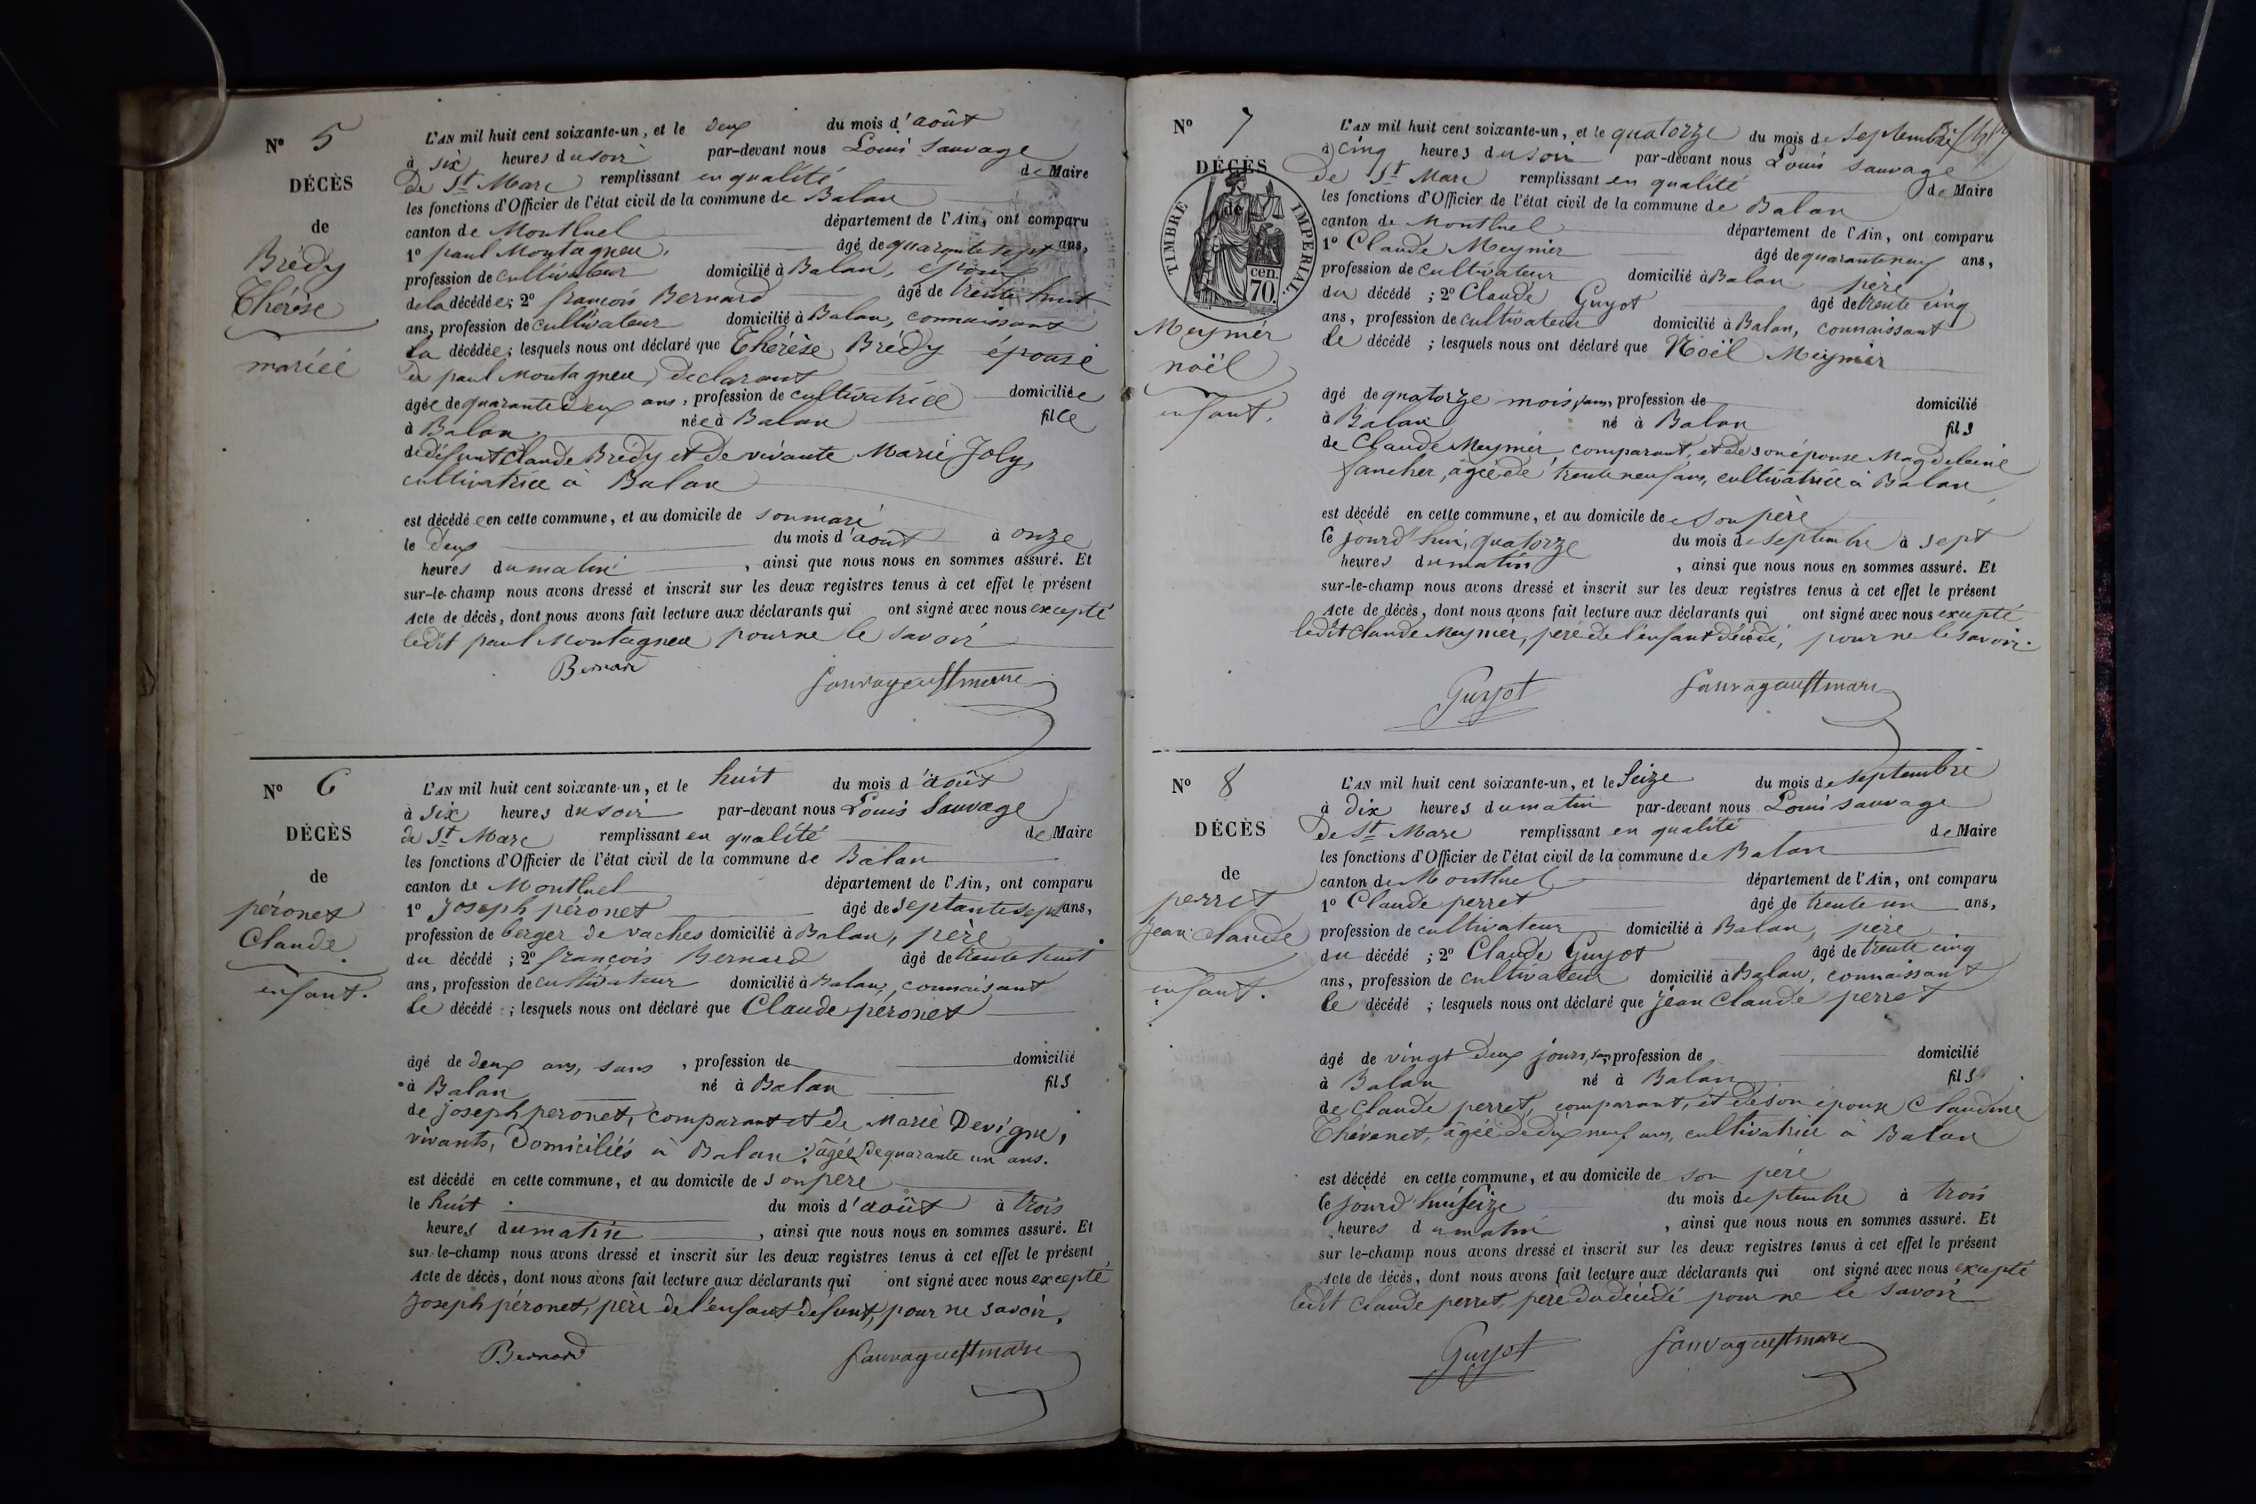 N° 5
DÉCÈS
de
Brédy
Thérèse
mariée
L'AN mil huit cent soixante-un, et le deux du mois d'août
à six heures du soir par-devant nous Louis Sauvage
De St Marc remplissant en qualité de Maire
les fonctions d'Officier de l'état civil de la commune de Balan
canton de Montluel département de l'Ain, ont comparu
1° paul Montagneu, âgé de quarante sept ans,
profession de cultivateur domicilié à Balan, époux
de la décédée; 2° françois Bernard âgé de trente huit
ans, profession de cultivateur domicilié à Balan, connaissant
la décédée; lesquels nous ont déclaré que Thérèse Brédy épouse
de paul Montagneu, déclarant
âgée de quarante deux ans, profession de cultivatrice domiciliée
à Balan née à Balan fille
de défunt Claude Brédy et de vivante Marie Joly,
cultivatrice à Balan
est décédée en cette commune, et au domicile de son mari
le deux du mois d'août à onze
heures du matin, ainsi que nous nous en sommes assuré. Et
sur-le-champ nous avons dressé et inscrit sur les deux registres tenus à cet effet le présent
Acte de décès, dont nous avons fait lecture aux déclarants qui ont signé avec nous excepté
ledit paul Montagneu pour ne le savoir
Bernard Sauvage de St marc
N° 6
DÉCÈS
de
péronet
Claude
enfant.
L'AN mil huit cent soixante-un, et le huit du mois d'août
à six heures du soir par-devant nous Louis Sauvage
de St Marc remplissant en qualité de Maire
les fonctions d'Officier de l'état civil de la commune de Balan
canton de Montluel département de l'Ain, ont comparu
1° Joseph péronet âgé de septante sept ans,
profession de berger de vaches domicilié à Balan, père
du décédé; 2° françois Bernard âgé de trente huit
ans, profession de cultivateur domicilié à Balan, connaisant
le décédé; lesquels nous ont déclaré que Claude péronet
âgé de deux ans, sans, profession de domicilié
à Balan né à Balan fils
de joseph peronet, comparant et de Marie Devigne,
vivants, Domiciliés à Balan; âgée de quarante un ans.
est décédé en cette commune, et au domicile de son père
le huit du mois d'août à trois
heures du matin, ainsi que nous nous en sommes assuré. Et
sur-le-champ nous avons dressé et inscrit sur les deux registres tenus à cet effet le présent
Acte de décès, dont nous avons fait lecture aux déclarants qui ont signé avec nous excepté
Joseph péronet, père de l'enfant défunt, pour ne savoir.
Bernard Sauvage de St marc
N° 7
DÉCÈS
de
TIMBRE IMPÉRIAL.
cen.
70
Meynier
noël
enfant.
L'AN mil huit cent soixante-un, et le quatorze du mois de septembre
à cinq heures du soir par-devant nous Louis sauvage
De St Marc remplissant en qualité de Maire
les fonctions d'Officier de l'état civil de la commune de Balan
canton de Montluel département de l'Ain, ont comparu
1° Claude Meynier âgé de quarante neuf ans,
profession de cultivateur domicilié à Balan père
du décédé; 2° Claude Guyot âgé de trente cinq
ans, profession de cultivateur domicilié à Balan, connaissant
le décédé; lesquels nous ont déclaré que Noël Meynier
âgé de quatorze mois, sans, profession de domicilié
à Balan né à Balan fils
de Claude Meynier, comparant, et de son épouse Magdeleine
fancher, âgée de trente neuf ans, cultivatrice à Balan
est décédé en cette commune, et au domicile de son père
le jourd'hui, quatorze du mois de septembre à sept
heures du matin, ainsi que nous nous en sommes assuré. Et
sur-le-champ nous avons dressé et inscrit sur les deux registres tenus à cet effet le présent
Acte de décès, dont nous avons fait lecture aux déclarants qui ont signé avec nous excepté
ledit Claude Meynier, père de l'enfant décédé, pour ne le savoir.
Guyot Sauvage de St marc
N° 8
DÉCÈS
de
perret
jean claude
enfant.
L'AN mil huit cent soixante-un, et le Seize du mois de septembre
à dix heures du matin par-devant nous Louis sauvage
De St Marc remplissant en qualité de Maire
les fonctions d'Officier de l'état civil de la commune de Balan
canton de Montluel département de l'Ain, ont comparu
1° Claude perret âgé de trente un ans,
profession de cultivateur domicilié à Balan, père
du décédé; 2° Claude Guyot âgé de trente cinq
ans, profession de cultivateur domicilié à Balan, connaissant
le décédé; lesquels nous ont déclaré que Jean Claude perret
âgé de vingt deux jours, sans, profession de domicilié
à Balan né à Balan fils
de claude perret, comparant, et de son épouse Claudine
Thévenet, âgée de dix neuf ans, cultivatrice à Balan
est décédé en cette commune, et au domicile de son père
le jourd'hui seize du mois de septembre à trois
heures du matin, ainsi que nous nous en sommes assuré. Et
sur le-champ nous avons dressé et inscrit sur les deux registres tenus à cet effet le présent
Acte de décès, dont nous avons fait lecture aux déclarants qui ont signé avec nous excepté
ledit Claude perret, père du décédé pour ne le savoir
Guyot Sauvage de St marc